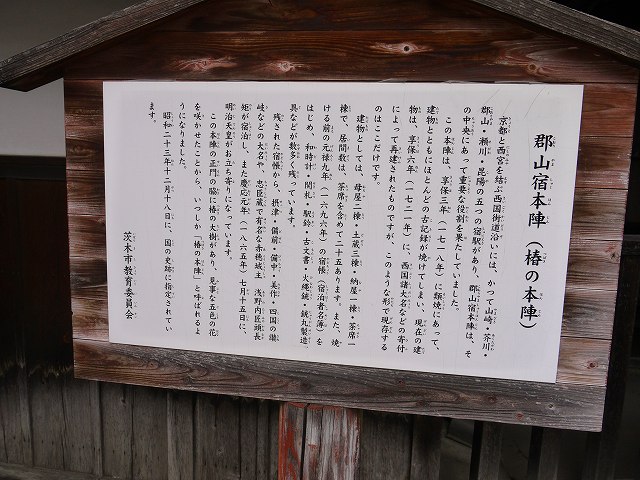 郡山宿本陣（椿の本陣）
京都と西宮を結ぶ西国街道沿いには、かつて山崎・芥川・
郡山・瀬川・昆陽の五つの宿駅があり、郡山宿本陣は、そ
の中央にあって重要な役割を果たしていました。
この本陣は、享保三年（一七一八年）に類焼にあって、
建物とともにほとんどの古記録が焼けてしまい、現在の建
物は、享保六年（一七二一年）に、西国諸大名などの寄付
によって再建されたものですが、このような形で現存する
のはここだけです。
建物としては、母屋二棟・土蔵三棟・納屋一棟・茶席一
棟で、居間数は、茶席を含めて二十五あります。また、焼
ける前の元禄九年（一六九六年）の宿帳（宿泊者名簿）を
はじめ、和時計・関札・駅鈴・古文書・火縄銃・銃丸製造
具などが数多く残っています。
残された宿帳から、摂津・備前・備中・美作・四国の讃
岐などの大名や、忠臣蔵で有名な赤穂城主 浅野内匠頭長
矩が宿泊し、また慶応元年（一八六五年）七月十五日に、
明治天皇がお立ち寄りになっています。
この本陣の正門の脇に椿の大樹があり、見事な五色の花
を咲かせたことから、いつしか「椿の本陣」と呼ばれるよ
うになりました。
昭和二十三年十二月十八日に、国の史跡に指定されてい
ます。
茨木市教育委員会